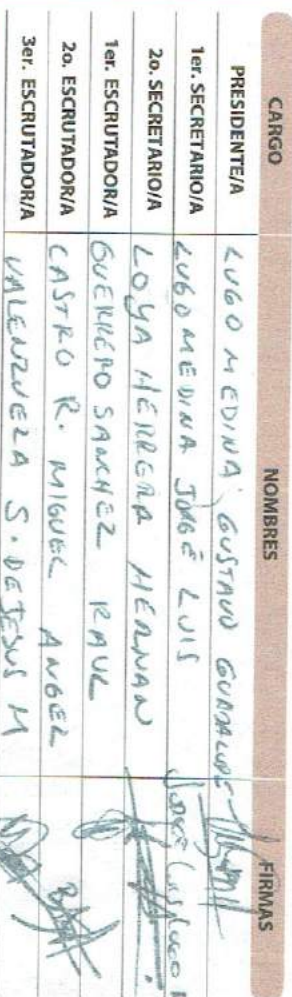 CARGO NOMBRES FIRMAS
PRESIDENTE/A LUGO MEDINA GUSTAVO GUADALUPE
1er. SECRETARIO/A LUGO MEDINA JORGE LUIS
2o. SECRETARIO/A LOYA HERRERA HERNAN
1er. ESCRUTADOR/A GUERRERO SANCHEZ RAUL
2o. ESCRUTADOR/A CASTRO R. MIGUEL ANGEL
3er. ESCRUTADOR/A VALENZUELA S. DE JESUS M